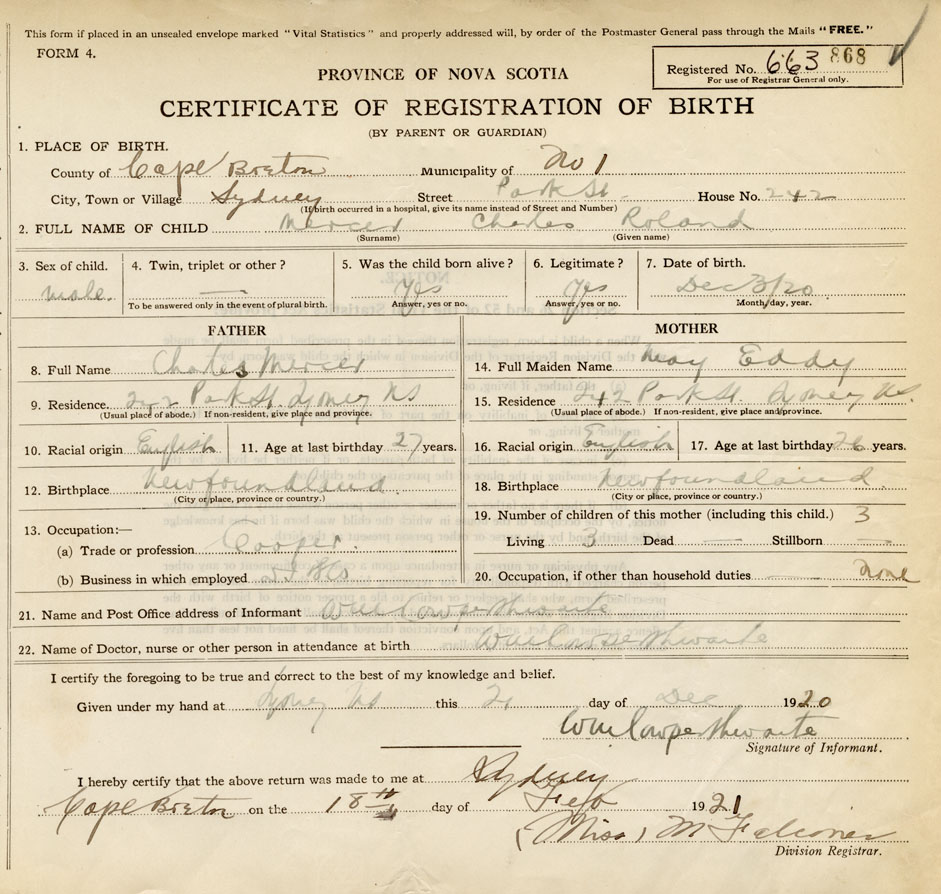 This form if placed in an unsealed envelope marked "Vital Statistics" and properly addressed will, by order of the Postmaster General pass through the Mails "FREE."
FORM 4.
Registered No. 663 868
For use of Registrar General only.
PROVINCE OF NOVA SCOTIA
CERTIFICATE OF REGISTRATION OF BIRTH
(BY PARENT OR GUARDIAN)
1. PLACE OF BIRTH.
County of Cape Breton Municipality of No 1
City, Town or Village Sydney Street Park St. House No. 242
(If birth occurred in a hospital, give its name instead of Street and Number)
2. FULL NAME OF CHILD Mercer Charles Roland
(Surname) (Given name)
3. Sex of child. 4. Twin, triplet or other? 5. Was the child born alive? 6. Legitimate? 7. Date of birth.
male. — Yes Yes Dec 3/20
To be answered only in the event of plural birth. Answer, yes or no. Answer, yes or no. Month, day, year.
FATHER
8. Full Name Charles Mercer
9. Residence 242 Park St. Sydney NS
(Usual place of abode.) If non-resident, give place and province.
10. Racial origin English 11. Age at last birthday 27 years.
12. Birthplace Newfoundland
(City or place, province or country.)
13. Occupation:—
(a) Trade or profession Cooper
(b) Business in which employed
MOTHER
14. Full Maiden Name May Eddy
15. Residence 242 Park St. Sydney NS.
(Usual place of abode.) If non-resident, give place and province.
16. Racial origin English 17. Age at last birthday 26 years.
18. Birthplace Newfoundland
(City or place, province or country.)
19. Number of children of this mother (including this child.) 3
Living 3 Dead — Stillborn —
20. Occupation, if other than household duties none
21. Name and Post Office address of Informant Wm Cowperthwaite
22. Name of Doctor, nurse or other person in attendance at birth Wm Cowperthwaite
I certify the foregoing to be true and correct to the best of my knowledge and belief.
Given under my hand at Sydney NS this day of Dec 1920
Wm Cowperthwaite
Signature of Informant.
I hereby certify that the above return was made to me at Sydney
Cape Breton on the 18th day of Feb 1921
(Miss) M Falconer
Division Registrar.